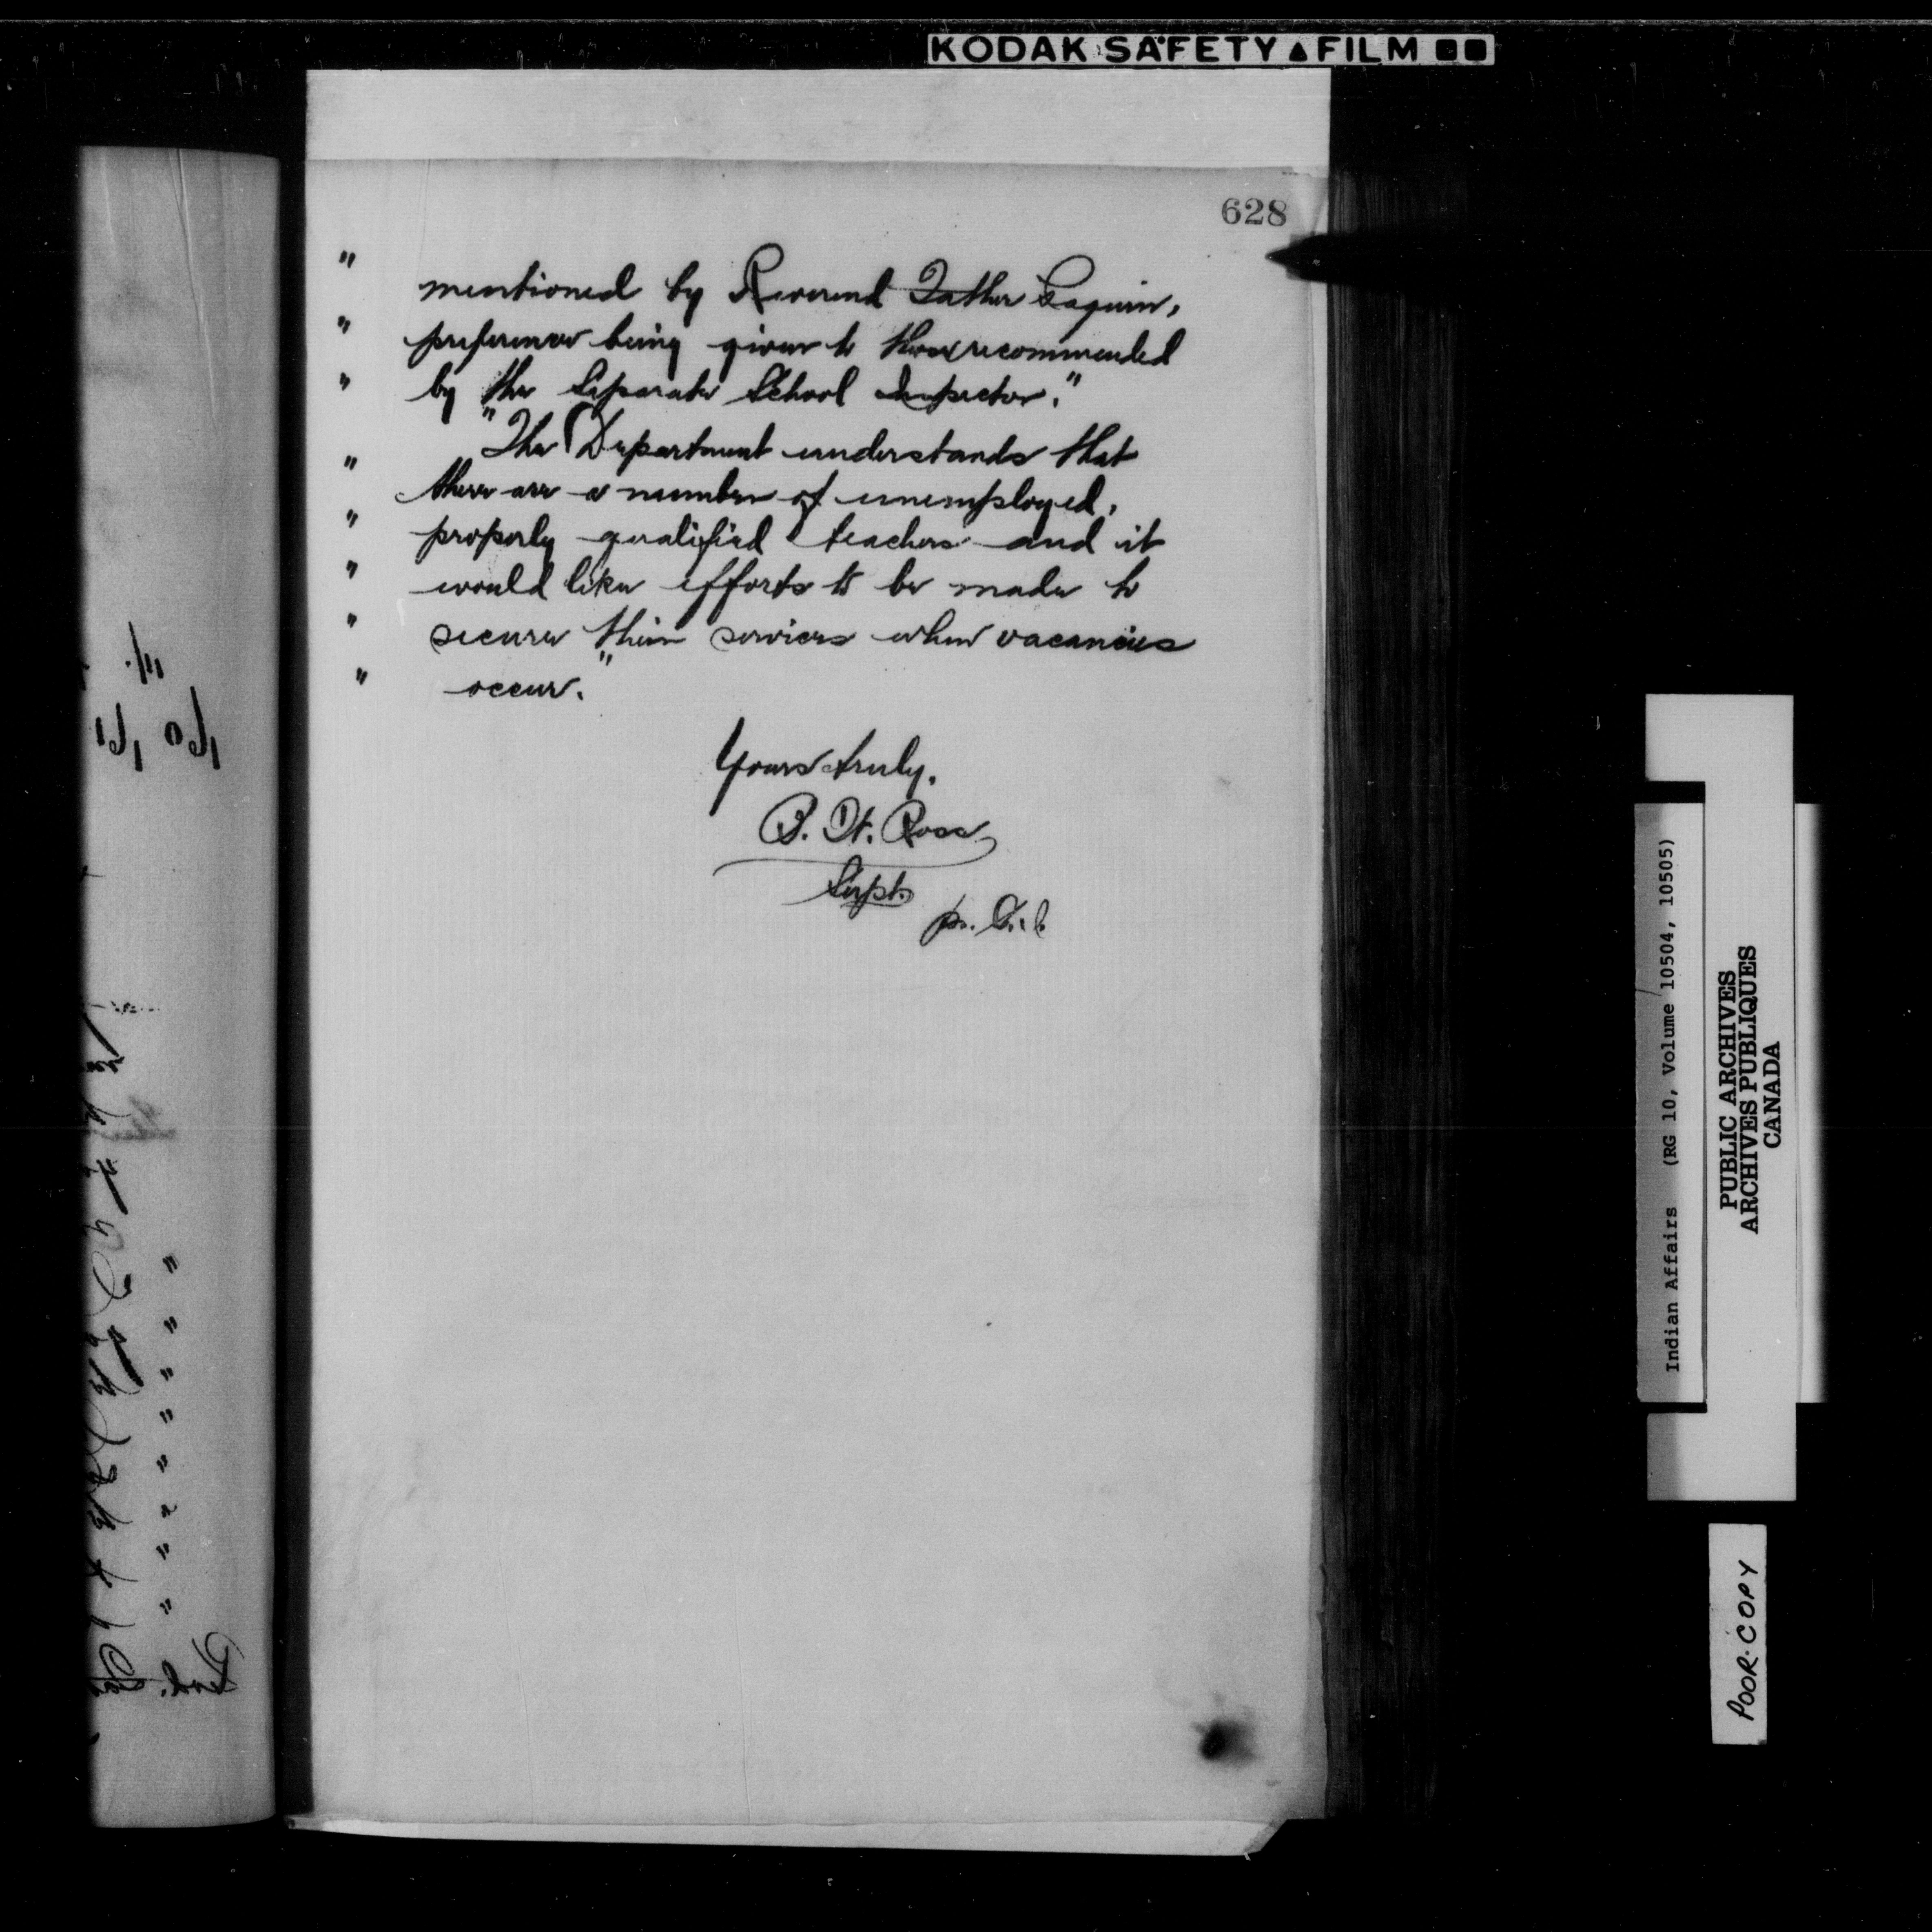 KODAK SAFETY FILM
628
" mentioned by Reverend Father Paquin,
" preference being given to those recommended
" by the Separate School Inspector."
"The Department understands that
" there are a number of unemployed,
" properly qualified teachers and it
" would like efforts to be made to
" secure their services when vacancies
" occur."
Yours truly,
Ross
Supt.
Indian Affairs (RG 10, Volume 10504, 10505)
PUBLIC ARCHIVES
ARCHIVES PUBLIQUES
CANADA
POOR COPY